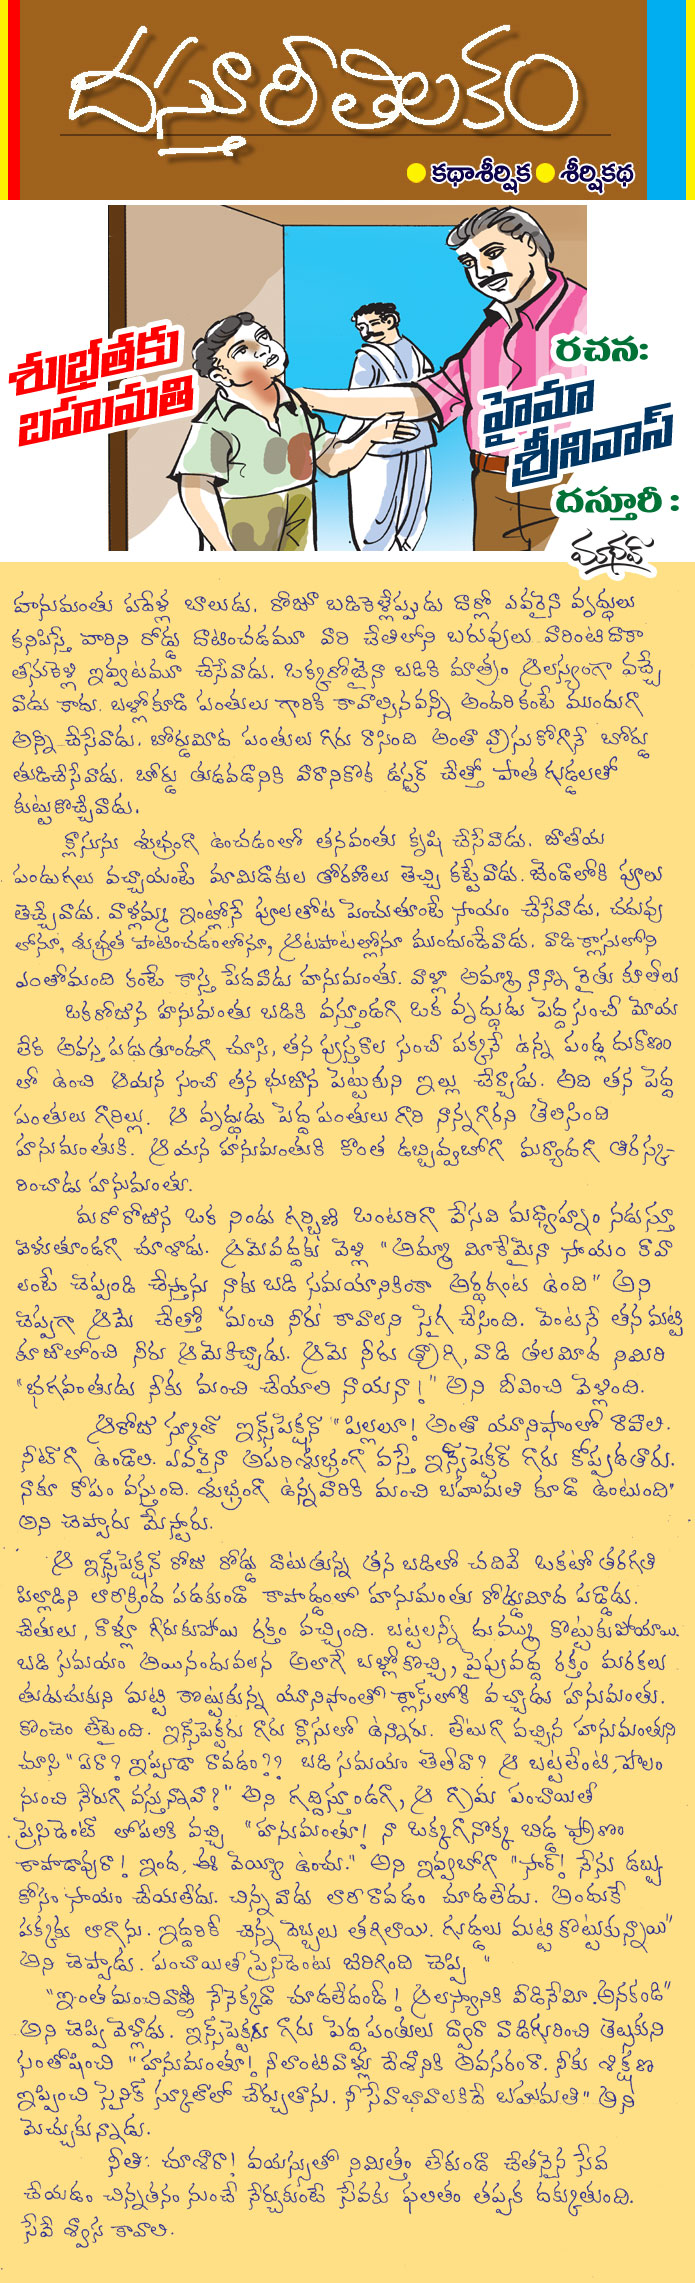 దస్తూరీ తిలకం
• కథాశీర్షిక • శీర్షికథ
శుభ్రతకు
బహుమతి
రచన:
హైమా
శ్రీనివాస్
దస్తూరీ :
మాధవ్
హనుమంతు పదేళ్ల బాలుడు. రోజూ బడికెళ్లేప్పుడు దార్లో ఎవరైనా వృద్ధులు
కనిపిస్తే వారిని రోడ్డు దాటించడమూ వారి చేతిలోని బరువులు వారింటిదాకా
తీసుకెళ్లి ఇవ్వటమూ చేసేవాడు. ఒక్కరోజైనా బడికి మాత్రం ఆలస్యంగా వచ్చే
వాడు కాదు. బళ్లోకూడా పంతులు గారికి కావాల్సినవన్నీ అందరికంటే ముందుగా
అన్నీ చేసేవాడు. బోర్డుమీద పంతులు గారు రాసింది అంతా వ్రాసుకోగానే బోర్డు
తుడిచేసేవాడు. బోర్డు తుడవడానికి వారానికొక డస్టర్ చేత్తో పాత గుడ్డలతో
కుట్టుకొచ్చేవాడు.
క్లాసును శుభ్రంగా ఉంచడంలో తనవంతు కృషి చేసేవాడు. జాతీయ
పండుగలు వచ్చాయంటే మామిడాకుల తోరణాలు తెచ్చి కట్టేవాడు. జెండాలోకి పూలు
తెచ్చేవాడు. వాళ్లమ్మ ఇంట్లోనే పూలతోట పెంచుతుంటే సాయం చేసేవాడు. చదువు
లోనూ, శుభ్రత పాటించడంలోనూ, ఆటపాటల్లోనూ ముందుండేవాడు. వాడి క్లాసులోని
ఎంతోమంది కంటే కాస్త పేదవాడు హనుమంతు. వాళ్లా అమ్మా నాన్నా రైతు కూలీలు
ఒకరోజున హనుమంతు బడికి వస్తూండగా ఒక వృద్ధుడు పెద్ద సంచీ మోయ
లేక అవస్థ పడుతూండగా చూసి, తన పుస్తకాల సంచీ పక్కనే ఉన్న పండ్ల దుకాణం
లో ఉంచి ఆయన సంచీ తన భుజాన పెట్టుకుని ఇల్లు చేర్చాడు. అది తన పెద్ద
పంతులు గారిల్లు. ఆ వృద్ధుడు పెద్ద పంతులు గారి నాన్నగారని తెలిసింది
హనుమంతుకి. ఆయన హనుమంతుకి కొంత డబ్బివ్వబోగా మర్యాదగా తిరస్క-
రించాడు హనుమంతు.
మరోరోజున ఒక నిండు గర్భిణి ఒంటరిగా వేసవి మధ్యాహ్నం నడుస్తూ
వెళుతూండగా చూశాడు. ఆమెవద్దకు వెళ్లి "అమ్మా మీకేమైనా సాయం కావా
లంటే చెప్పండి చేస్తాను నాకు బడి సమయానికింకా అర్ధగంట ఉంది" అని
చెప్పగా ఆమే చేత్తో "మంచి నీరు" కావాలని సైగ చేసింది. వెంటనే తన మట్టి
కూజాలోంచి నీరు ఆమెకిచ్చాడు. ఆమె నీరు త్రాగి, వాడి తలమీద నిమిరి
"భగవంతుడు నీకు మంచి చేయాలి నాయనా!" అని దీవించి వెళ్లింది.
ఆరోజు స్కూల్ ఇన్స్‌పెక్షన్ "పిల్లలూ! అంతా యూనిఫాంలో రావాలి.
నీట్‌గా ఉండాలి. ఎవరైనా అపరిశుభ్రంగా వస్తే ఇన్స్‌పెక్టర్ గారు కోప్పడతారు.
నాకూ కోపం వస్తుంది. శుభ్రంగా ఉన్నవారికి మంచి బహుమతి కూడా ఉంటుంది"
అని చెప్పారు మేస్టారు.
ఆ ఇన్స్‌పెక్షన్ రోజు రోడ్డు దాటుతున్న తన బడిలో చదివే ఒకటో తరగతి
పిల్లాడిని లారీక్రింద పడకుండా కాపాడ్డంలో హనుమంతు రోడ్డుమీద పడ్డాడు.
చేతులు, కాళ్లూ గీరుకుపోయి రక్తం వచ్చింది. బట్టలన్నీ దుమ్ము కొట్టుకుపోయాయి.
బడి సమయం అయినందువలన అలాగే బళ్లోకొచ్చి, పైపువద్ద రక్తం మరకలు
తుడుచుకుని మట్టి కొట్టుకున్న యూనిఫాంతో క్లాస్‌లోకి వచ్చాడు హనుమంతు.
కొంచెం లేటైంది. ఇన్స్‌పెక్టరు గారు క్లాసులో ఉన్నారు. లేటుగా వచ్చిన హనుమంతుని
చూసి "ఏరా? ఇప్పుడా రావడం?? బడి సమయం తెలీదా? ఆ బట్టలేంటి, పొలం
నుంచి నేరుగా వస్తున్నావా?" అని గద్దిస్తూండగా, ఆ గ్రామ పంచాయితీ
ప్రెసిడెంట్ లోపలికి వచ్చి "హనుమంతూ! నా ఒక్కగానొక్క బిడ్డ ప్రాణం
కాపాడావురా! ఇంద, ఈ వెయ్యీ ఉంచు." అని ఇవ్వబోగా "సార్! నేను డబ్బు
కోసం సాయం చేయలేదు. చిన్నవాడు లారీ రావడం చూడలేదు. అందుకే
పక్కకు లాగాను. ఇద్దరికీ చిన్న దెబ్బలు తగిలాయి. గుడ్డలు మట్టి కొట్టుకున్నాయి"
అని చెప్పాడు. పంచాయితీ ప్రెసిడెంటు జరిగింది చెప్పి "
"ఇంత మంచివాణ్ణి నేనెక్కడా చూడలేదండీ! ఆలస్యానికి వీడినేమీ అనకండి"
అని చెప్పి వెళ్లాడు. ఇన్స్‌పెక్టరు గారు పెద్ద పంతులు ద్వారా వాడిగురించి తెల్సుకుని
సంతోషించి "హనుమంతూ! నీలాంటివాళ్లు దేశానికి అవసరంరా. నీకు శిక్షణ
ఇప్పించి సైనిక్ స్కూల్‌లో చేర్చుతాను. నీ సేవాభావాలకిదే బహుమతి" అని
మెచ్చుకున్నాడు.
నీతి: చూశారా! వయస్సుతో నిమిత్తం లేకుండా చేతనైన సేవ
చేయడం చిన్నతనం నుంచే నేర్చుకుంటే సేవకు ఫలితం తప్పక దక్కుతుంది.
సేవే శ్వాస కావాలి.